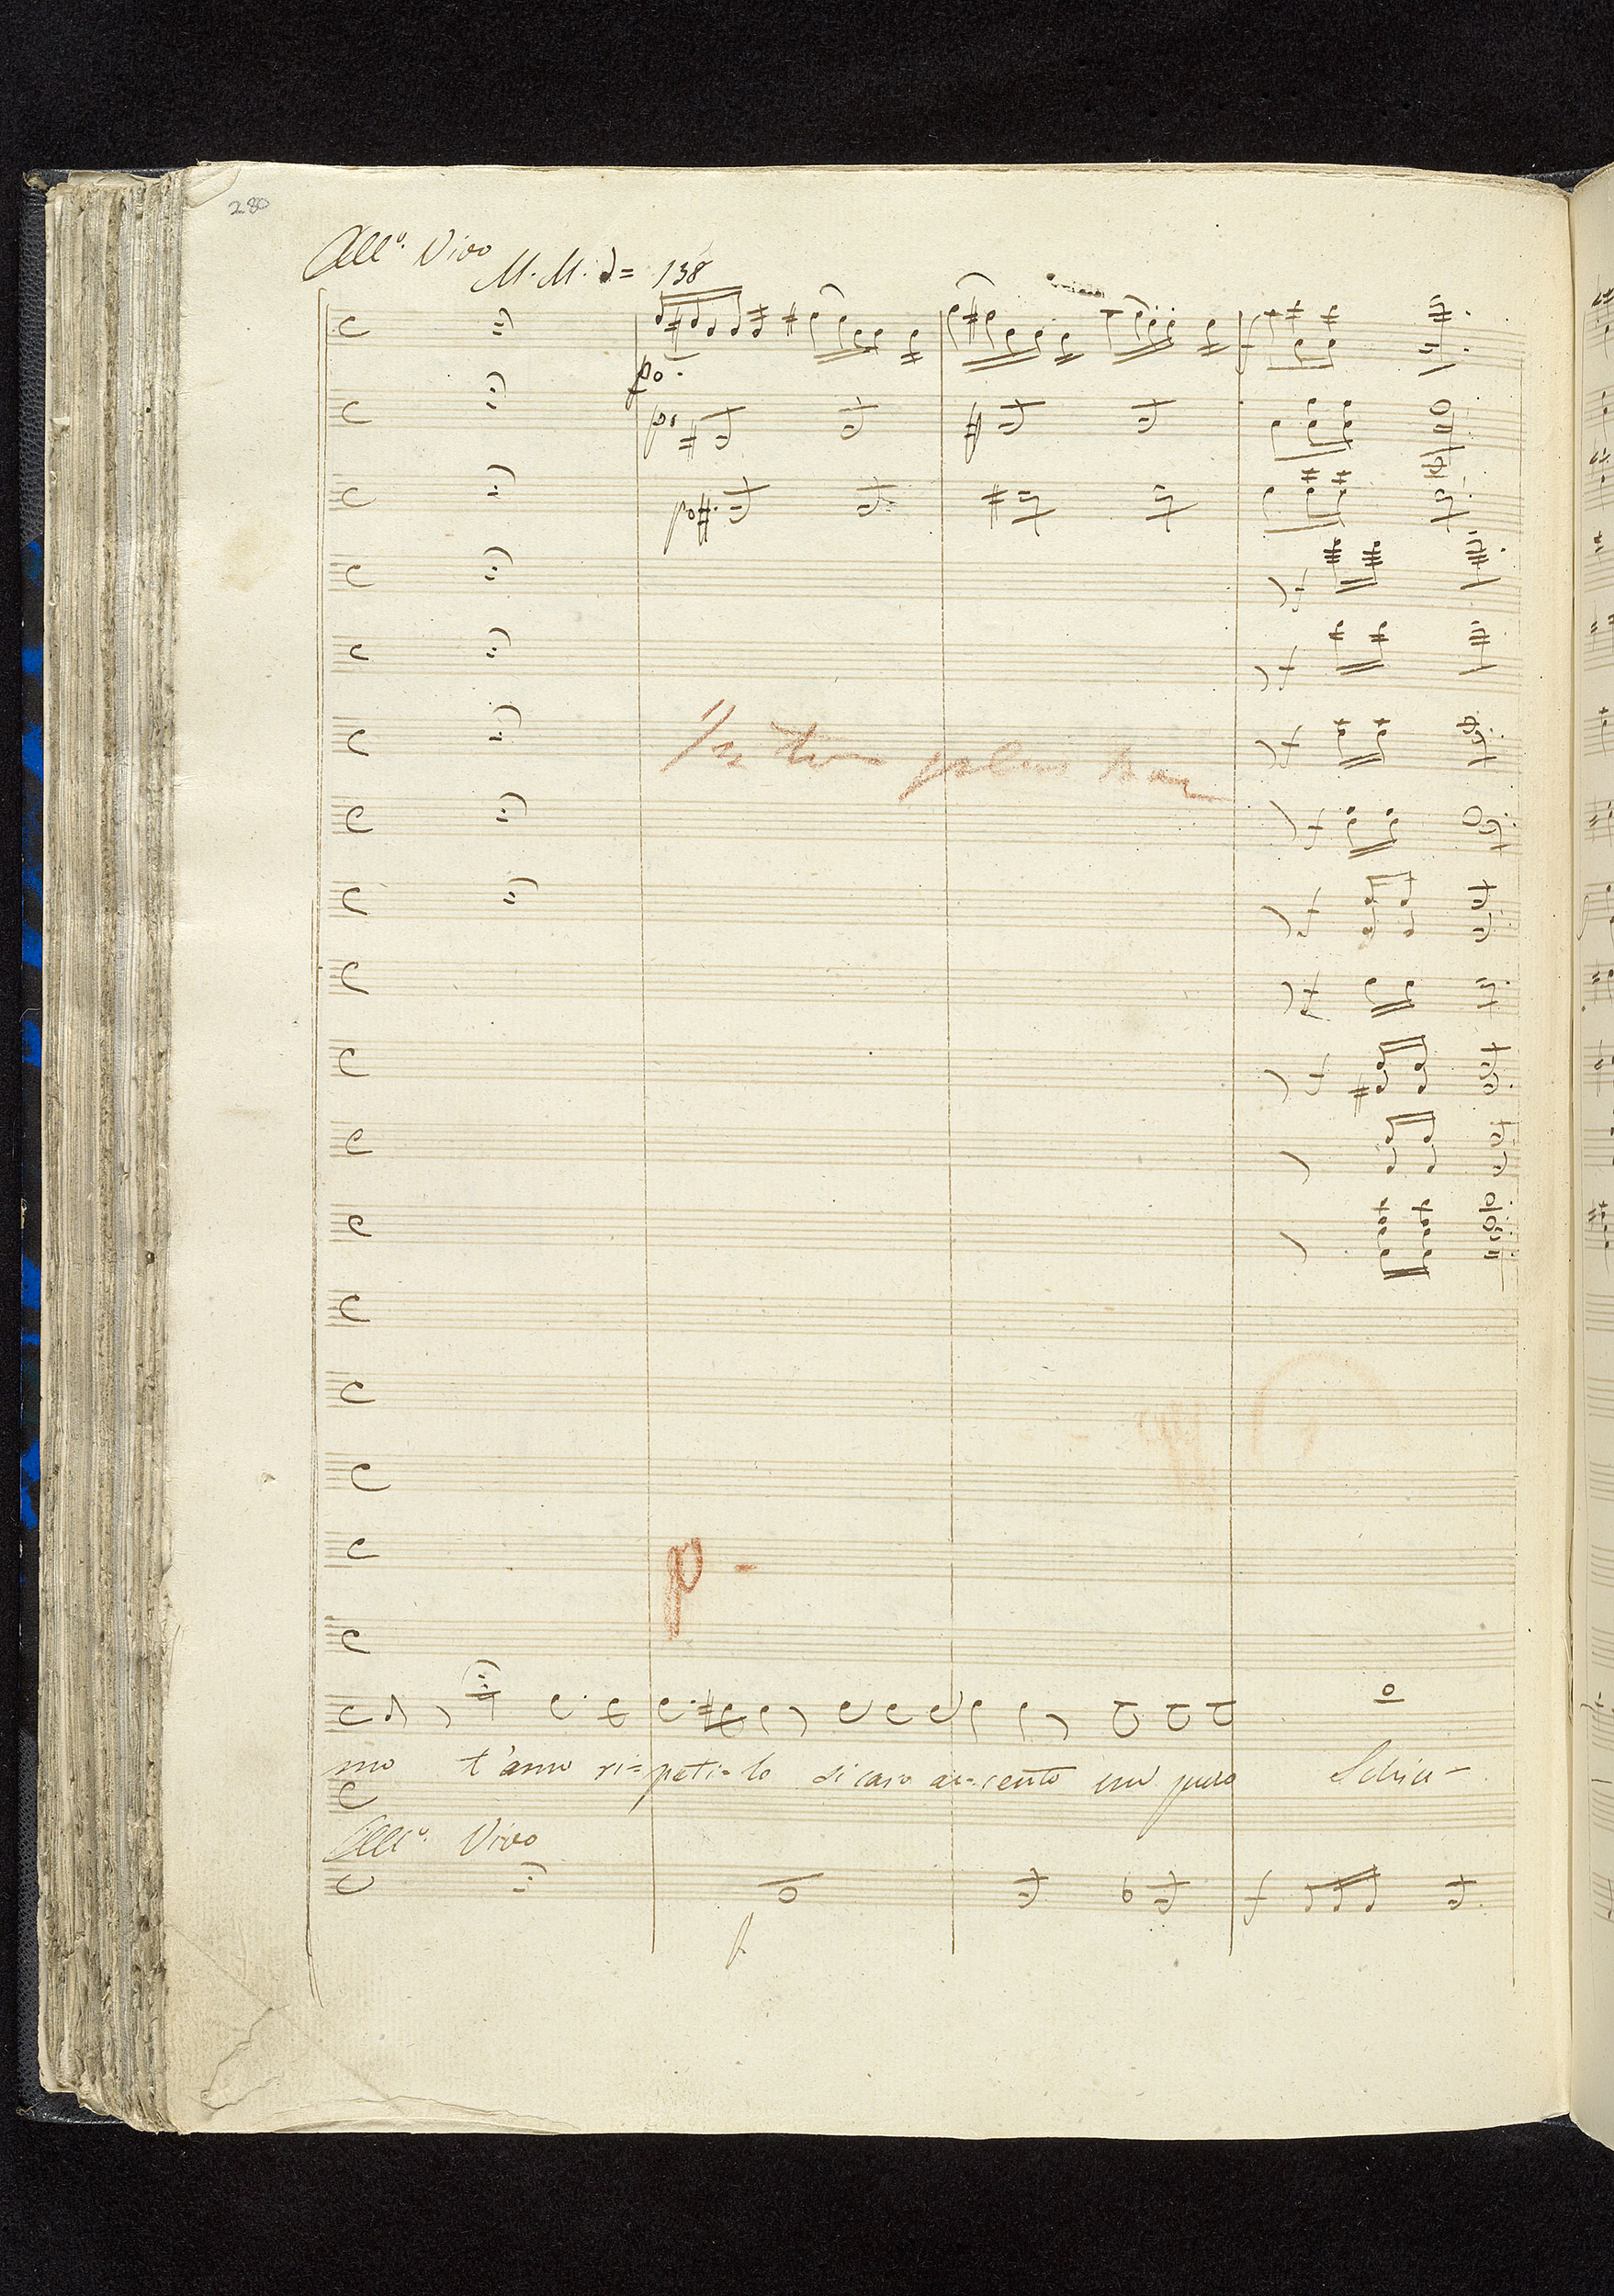 280
All.º Vivo
M. M. = 138
po.
f
p
mo t'amo ri= peti= lo si caro ac= cento un puro Schiu-
All.º Vivo
f